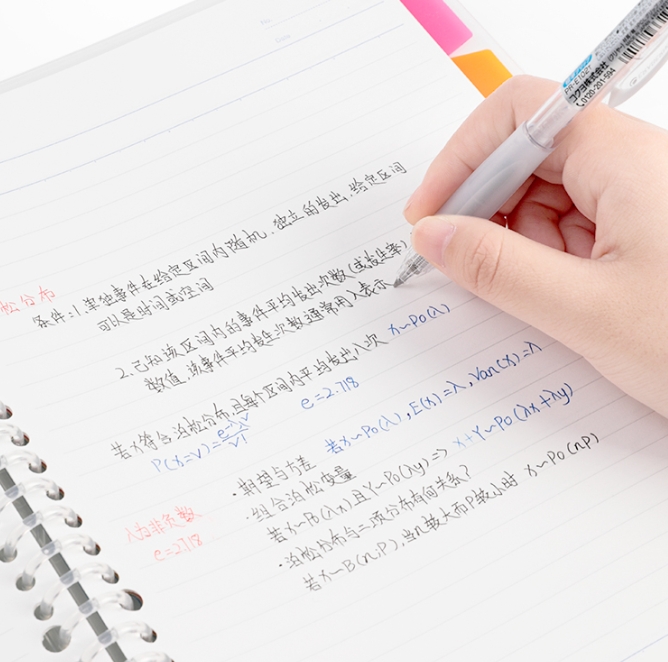 松分布
条件:1.单独事件在给定区间内随机、独立的发出、给定区间
可以是时间或空间
2.已知该区间内的事件平均发出次数(或发生率)
数值,该事件平均发生次数通常用入表示
若X符合泊松分布,且每个区间内平均发出入次 X~Po(λ)
P(X=V)=e^-λ λ^V/V! e=2.718
·期望与方差 若X~Po(λ),E(X)=λ,Var(X)=λ
·组合泊松变量
若X~Po(λx)且Y~Po(λy)=> X+Y~Po(λx+λy)
·泊松分布与二项分布有何关系?
若X~B(n,P),当n较大而P较小时 X~Po(nP)
入为非负数
e=2.718
PR-E1021
コクヨ株式会社
0120-201-594